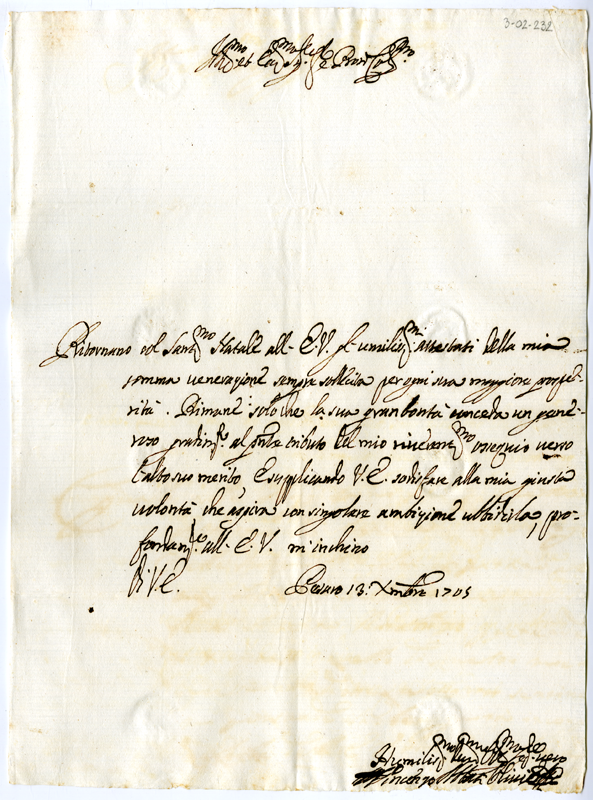 3-02-232
Ill.mo et Ecc.mo Sig.re e Pron Col.mo
Ritornano col Sant.mo Natale all' E.V. gl' umilis.mi attestati della mia
somma venerazione sempre sollecita per ogni sua maggiore prospe-
rità. Rimane solo che la sua gran bontà conceda un gene-
roso gradim.to al pnte tributo del mio riverent.mo ossequio verso
l'alto suo merito, e supplicando V.E. sodisfare alla mia giusta
volontà che aspira con singolare ambizione ubbidirla, pro-
fondam.te all' E.V. m'inchino
Di V.E.
Pesaro 13: Xmbre 1705
Humilis.mo
Vincenzo